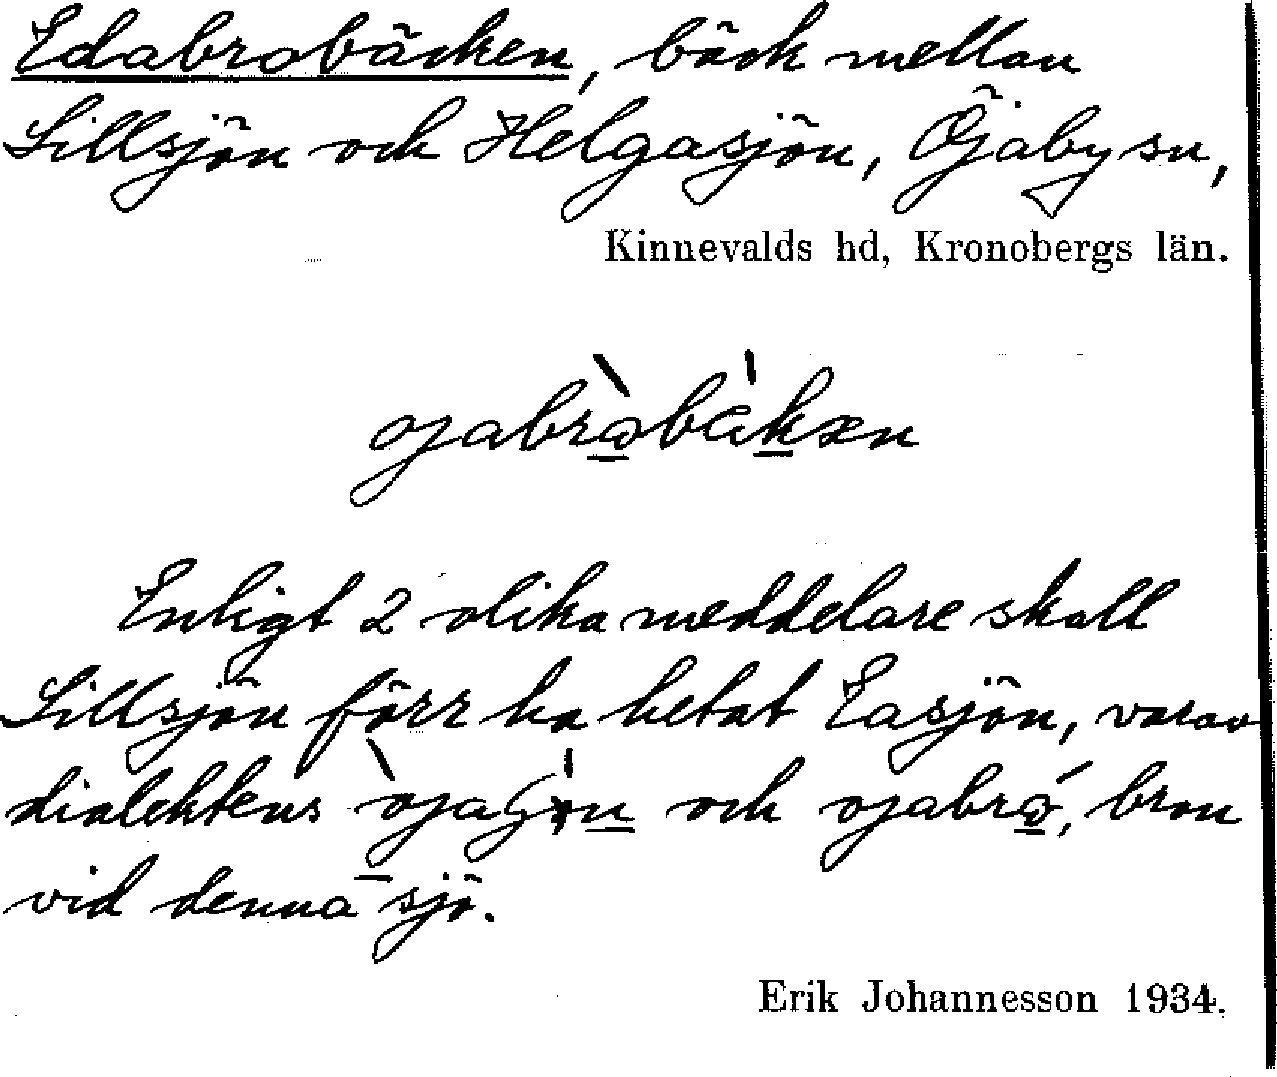 Edabrobäcken, bäck mellan
Lillsjön och Helgasjön, Öjaby sn,
Kinnevalds hd, Kronobergs län.
Enligt 2 olika meddelare skall
Lillsjön förr ha hetat Easjön, varav
dialektens och bron
vid denna sjö.
Erik Johannesson 1934.